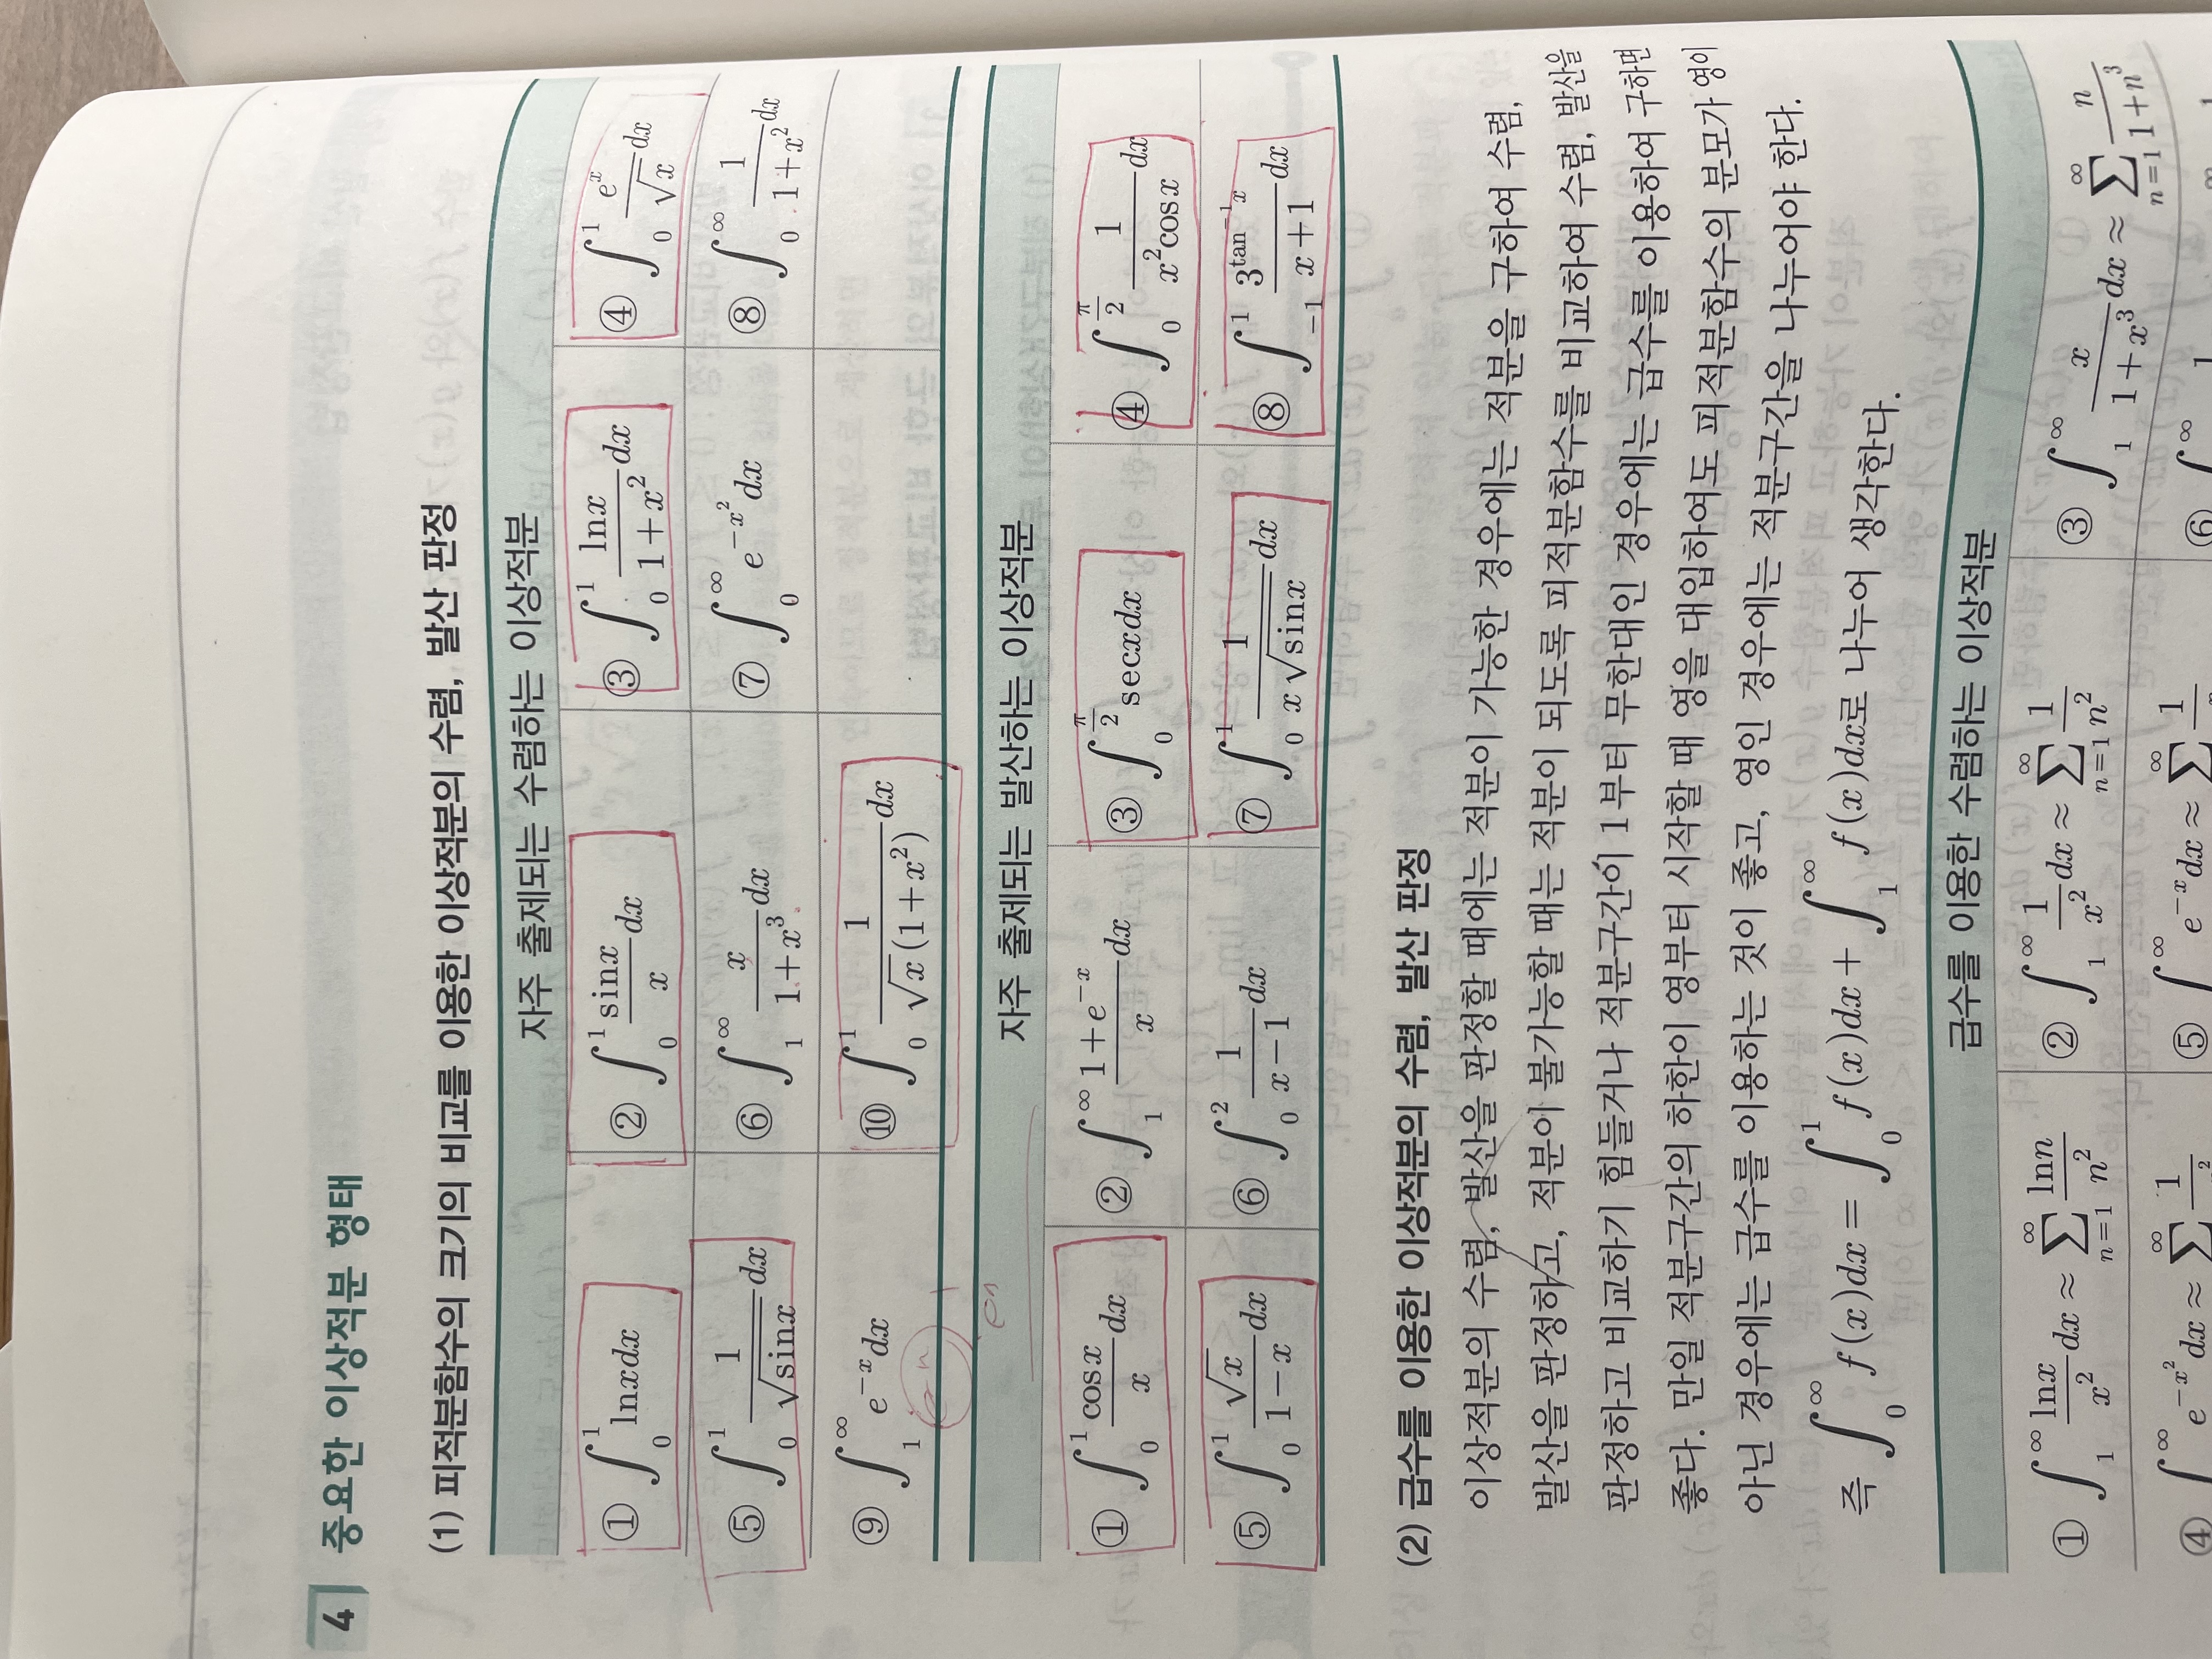 4 중요한 이상적분 형태
(1) 피적분함수의 크기의 비교를 이용한 이상적분의 수렴, 발산 판정
자주 출제되는 수렴하는 이상적분
① ∫₀¹ lnx dx ② ∫₀¹ sinx/x dx ③ ∫₀¹ lnx/(1+x²) dx ④ ∫₀¹ eˣ/√x dx
⑤ ∫₀¹ 1/√(sinx) dx ⑥ ∫₁^∞ x/(1+x³) dx ⑦ ∫₀^∞ e^(-x²) dx ⑧ ∫₀^∞ 1/(1+x²) dx
⑨ ∫₁^∞ e^(-x) dx ⑩ ∫₀¹ 1/(√x(1+x²)) dx
자주 출제되는 발산하는 이상적분
① ∫₀¹ cosx/x dx ② ∫₁^∞ (1+e^(-x))/x dx ③ ∫₀^(π/2) secx dx ④ ∫₀^(π/2) 1/(x²cosx) dx
⑤ ∫₀¹ √x/(1-x) dx ⑥ ∫₀² 1/(x-1) dx ⑦ ∫₀¹ 1/(x√(sinx)) dx ⑧ ∫₋₁¹ 3^(tan⁻¹x)/(x+1) dx
(2) 급수를 이용한 이상적분의 수렴, 발산 판정
이상적분의 수렴, 발산을 판정할 때에는 적분이 가능한 경우에는 적분을 구하여 수렴,
발산을 판정하고, 적분이 불가능할 때는 적분이 되도록 피적분함수를 비교하여 수렴, 발산을
판정하고 비교하기 힘들거나 적분구간이 1부터 무한대인 경우에는 급수를 이용하여 구하면
좋다. 만일 적분구간의 하한이 영부터 시작할 때 영을 대입하여도 피적분함수의 분모가 영이
아닌 경우에는 급수를 이용하는 것이 좋고, 영인 경우에는 적분구간을 나누어야 한다.
즉 ∫₀^∞ f(x)dx = ∫₀¹ f(x)dx + ∫₁^∞ f(x)dx로 나누어 생각한다.
급수를 이용한 수렴하는 이상적분
① ∫₁^∞ lnx/x² dx ≈ ∑_(n=1)^∞ lnn/n² ② ∫₁^∞ 1/x² dx ≈ ∑_(n=1)^∞ 1/n² ③ ∫₁^∞ x/(1+x³) dx ≈ ∑_(n=1)^∞ n/(1+n³)
④ ∫^∞ e^(-x²) dx ≈ ∑^∞ 1 ⑤ ∫^∞ e^(-x) dx ≈ ∑^∞ 1 ⑥ ∫^∞ 1